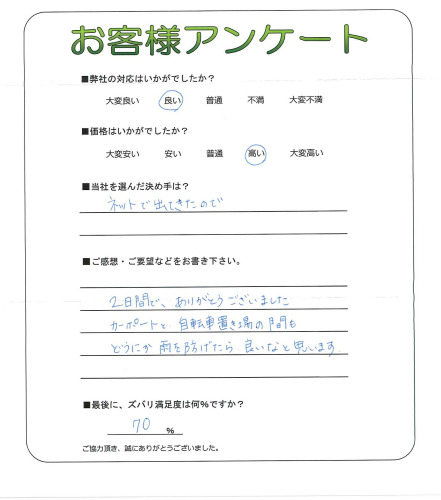 お客様アンケート
■弊社の対応はいかがでしたか？
大変良い 良い 普通 不満 大変不満
■価格はいかがでしたか？
大変安い 安い 普通 高い 大変高い
■当社を選んだ決め手は？
ネットで出てきたので
■ご感想・ご要望などをお書き下さい。
2日間で、ありがとうございました
カーポートと自転車置き場の間も
どうにか雨を防げたら良いなと思います.
■最後に、ズバリ満足度は何%ですか？
70 %
ご協力頂き、誠にありがとうございました。